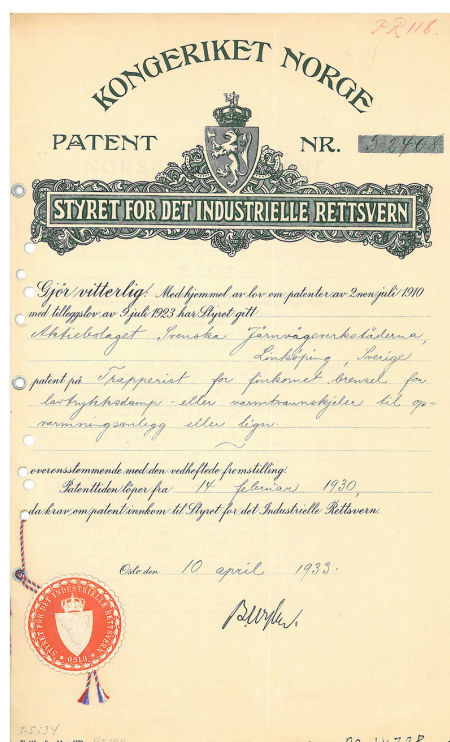 FR 118.
KONGERIKET NORGE
PATENT NR. 52408
STYRET FOR DET INDUSTRIELLE RETTSVERN
Gjör vitterlig: Med hjemmel av lov om patenter av 2nen juli 1910
med tilleggslov av 9 juli 1923 har Styret gitt
Aktiebolaget Svenska Järnvägsverkstäderna,
Linköping, Sverige
patent på Trapperist for finkornet brensel for
lavtrykksdamp- eller varmtvannskjeler til op=
varmningsanlegg eller lign.
overensstemmende med den vedheftede fremstilling.
Patenttiden löper fra 14 februar 1930,
da krav om patent innkom til Styret for det Industrielle Rettsvern.
Oslo den 10 april 1933.
STYRET FOR DET INDUSTRIELLE RETTSVERN
OSLO